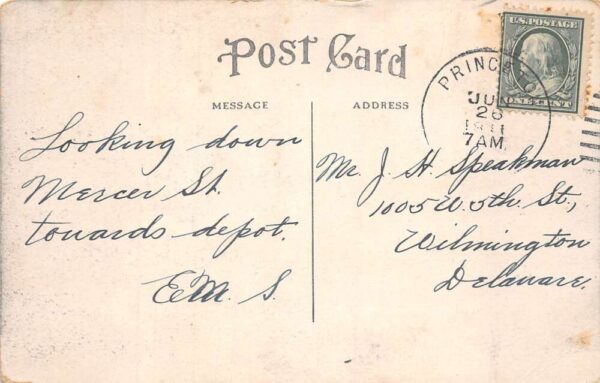 Post Card
U.S. POSTAGE
ONE CENT
PRINCETO
26
1911
7AM.
MESSAGE
ADDRESS
Looking down
Mercer St.
towards depot.
E.M. S.
Mr. J. H. Speakman
1005 W. 5th. St.,
Wilmington
Delaware.